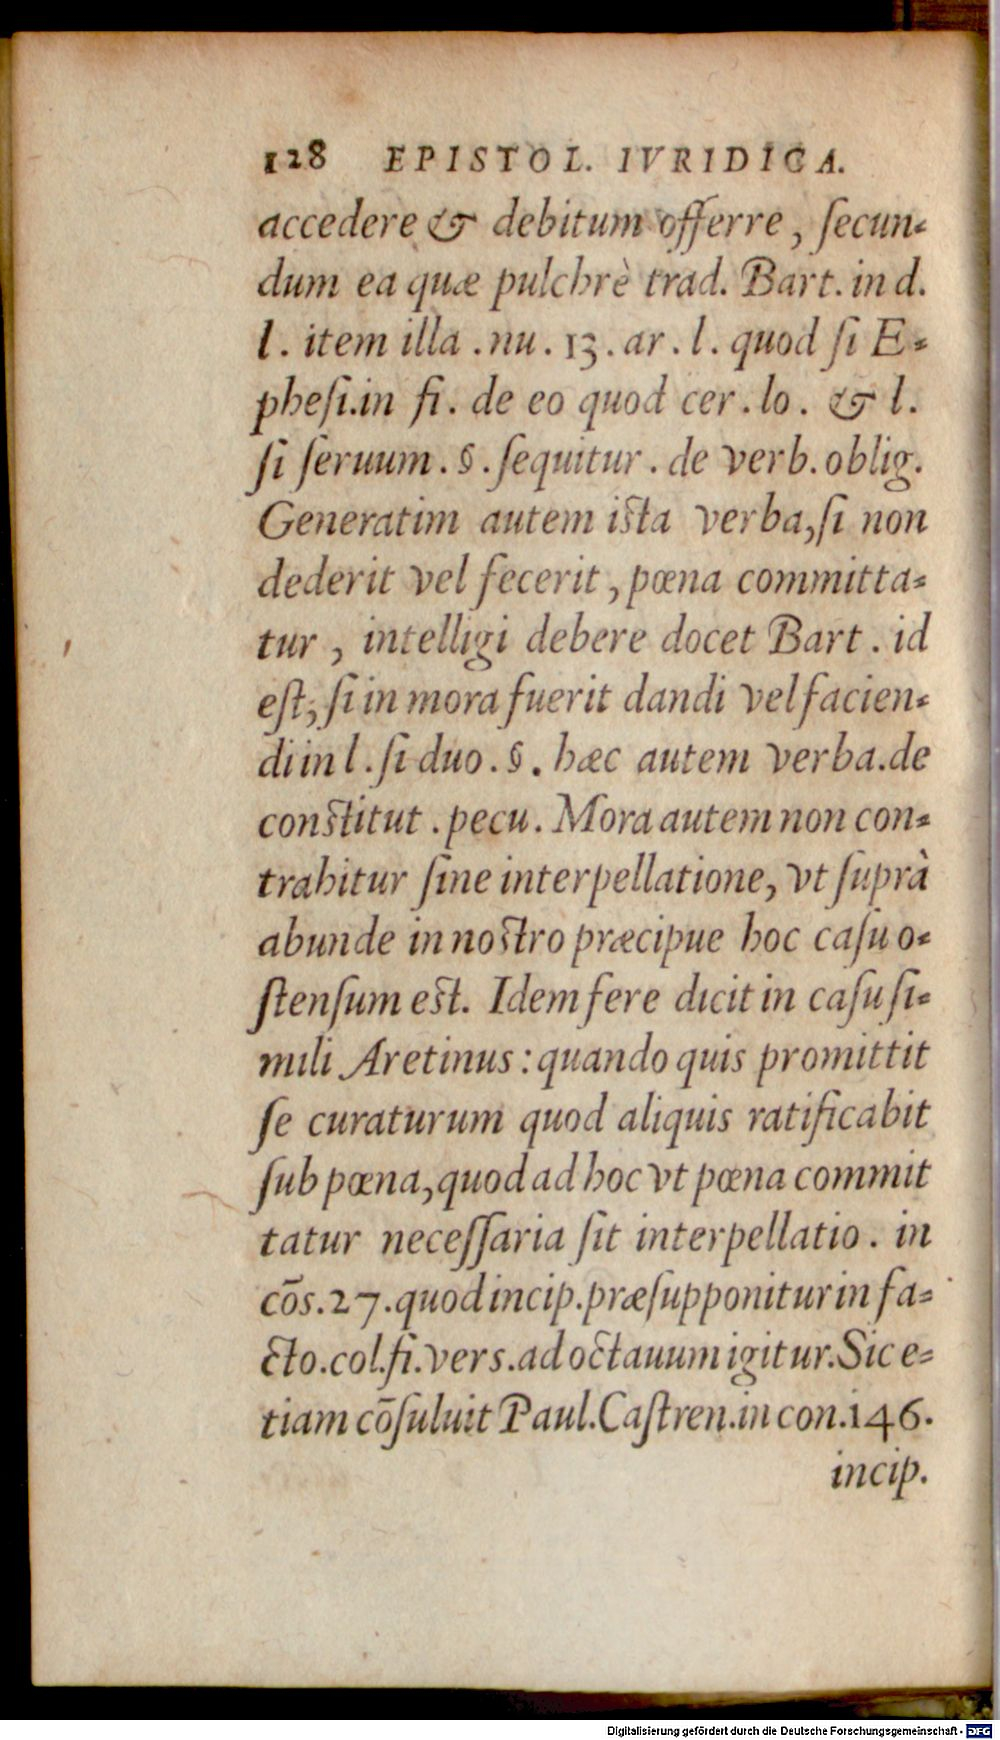 128 EPISTOL. IVRIDICA.
accedere & debitum offerre, ſecun-
dum ea quæ pulchrè trad. Bart. in d.
l. item illa. nu. 13. ar. l. quod ſi E-
pheſi. in fi. de eo quod cer. lo. & l.
ſi ſeruum. §. ſequitur. de verb. oblig.
Generatim autem iſta verba, ſi non
dederit vel fecerit, pœna committa-
tur, intelligi debere docet Bart. id
eſt, ſi in mora fuerit dandi vel facien-
di in l. ſi duo. §. hæc autem verba. de
conſtitut. pecu. Mora autem non con-
trahitur ſine interpellatione, vt ſuprà
abunde in noſtro præcipue hoc caſu o-
ſtenſum eſt. Idem fere dicit in caſu ſi-
mili Aretinus: quando quis promittit
ſe curaturum quod aliquis ratificabit
ſub pœna, quod ad hoc vt pœna commit
tatur neceſſaria ſit interpellatio. in
cõs. 27. quod incip. præſupponitur in fa-
cto. col. fi. verſ. ad octauum igitur. Sic e-
tiam cõſuluit Paul. Caſtren. in con. 146.
incip.
Digitalisierung gefördert durch die Deutsche Forschungsgemeinschaft - DFG